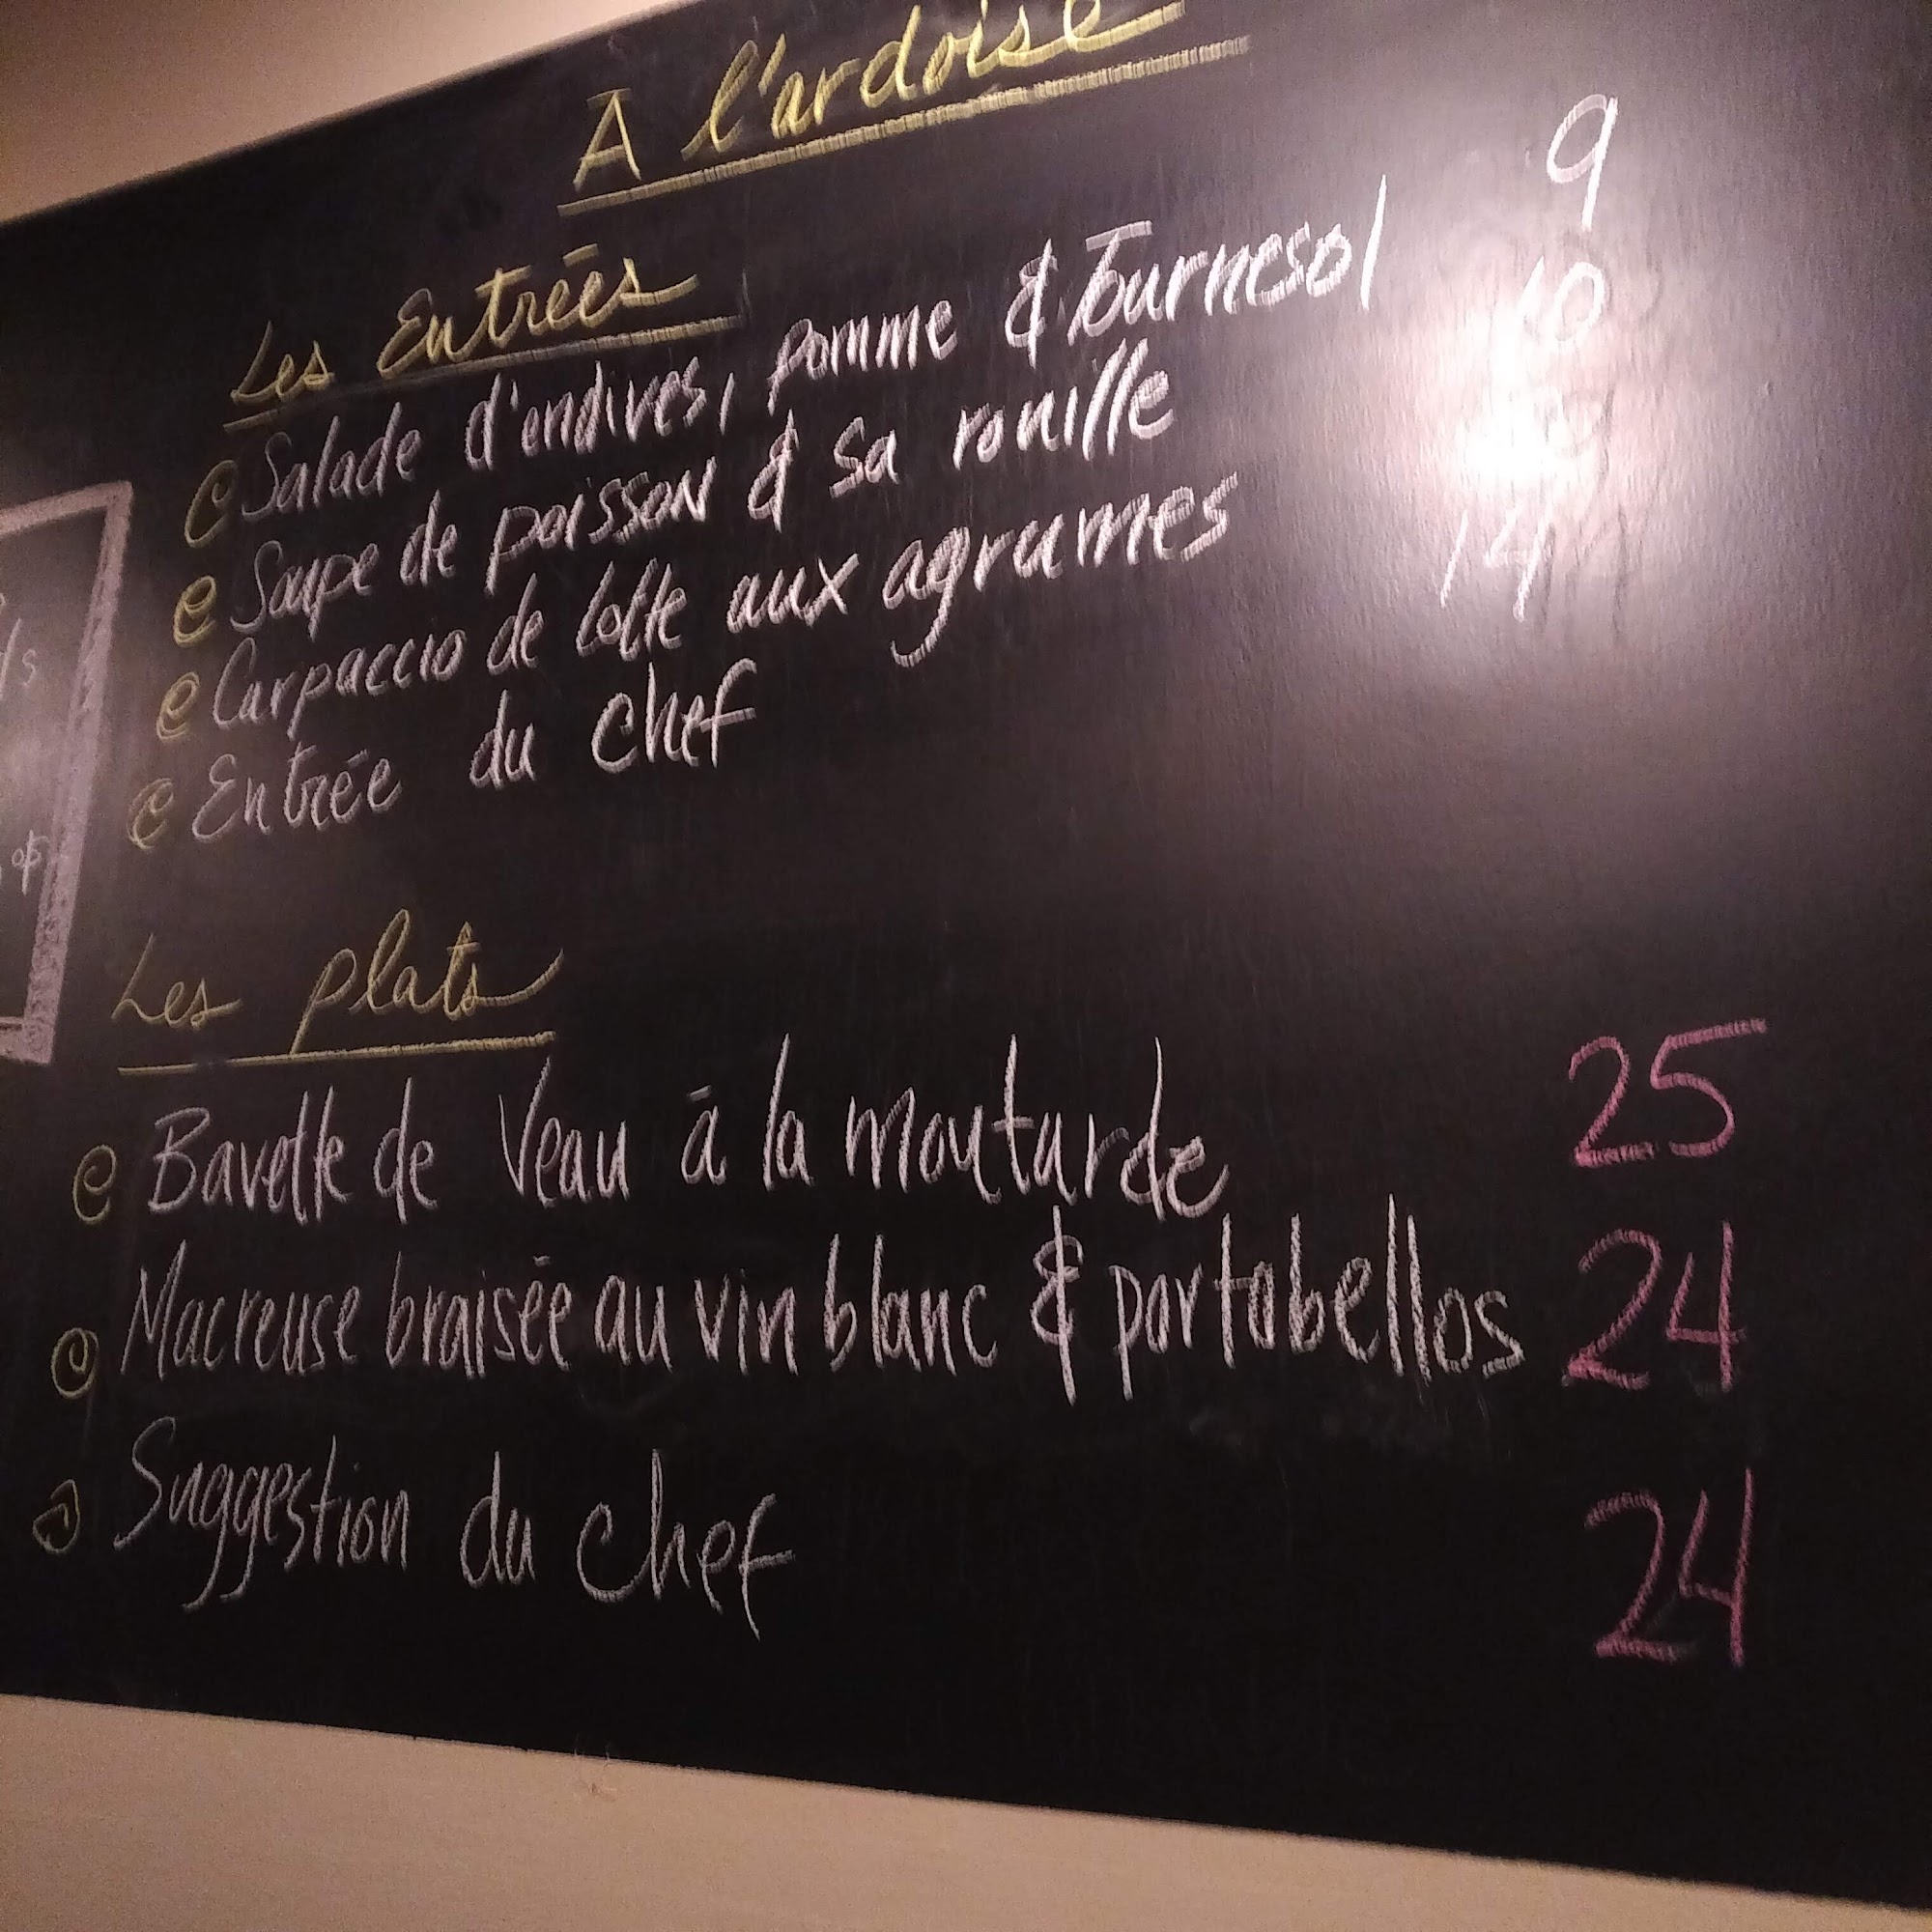 A l'ardoise
Les Entrées
Salade d'endives, pomme & Tournesol 9
Soupe de poisson & sa rouille 10
Carpaccio de lotte aux agrumes
Entrée du chef 14
Les plats
Bavette de Veau à la moutarde 25
Macreuse braisée au vin blanc & portobellos 24
Suggestion du chef 24